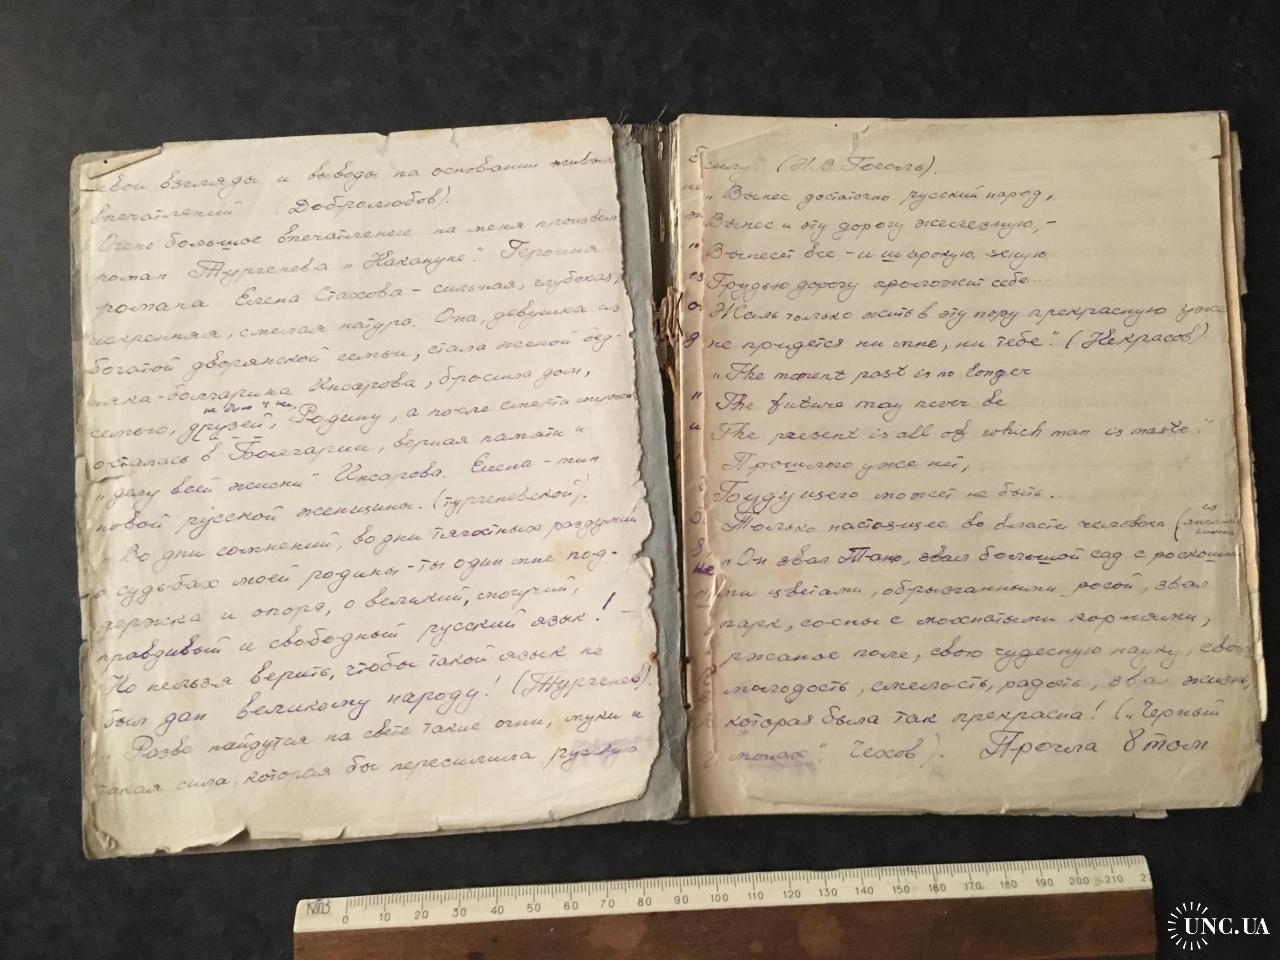 свои взгляды и выводы на основании живых
впечатлений (Добролюбов).
Очень большое впечатление на меня произвел
роман Тургенева „Накануне". Героиня
романа Елена Стахова - сильная, глубокая,
искренняя, смелая натура. Она, девушка из
богатой дворянской семьи, стала женой бед-
няка-болгарина Инсарова, бросила дом,
семью, друзей, Родину, а после смерти мужа
осталась в Болгарии, верная памяти и
„делу всей жизни" Инсарова. Елена - тип
новой русской женщины. (тургеневской).
„Во дни сомнений, во дни тягостных раздумий
о судьбах моей родины - ты один мне под-
держка и опора, о великий, могучий,
правдивый и свободный русский язык! -
Но нельзя верить, чтобы такой язык не
был дан великому народу! (Тургенев).
„Разве найдутся на свете такие огни, муки и
такая сила, которая бы пересилила русскую
силу (Н.В. Гоголь).
„Вынес достаточно русский народ,
Вынес и эту дорогу железную, -
Вынесет все - и широкую, ясную
Грудью дорогу проложит себе...
Жаль только жить в эту пору прекрасную уже
не придется ни мне, ни тебе". (Некрасов)
„The moment past is no longer
The future may never be
The present is all of which man is master."
Прошлого уже нет,
Будущего может не быть.
Только настоящее во власти человека (из
„Он звал Таню, звал большой сад с роскошны
ми цветами, обрызганными росой, звал
парк, сосны с мохнатыми корнями,
ржаное поле, свою чудесную науку, свою
молодость, смелость, радость, звал жизнь,
которая была так прекрасна! („Черный
монах". Чехов). Прочла 8 том
КПЗ
0 10 20 30 40 50 60 70 80 90 100 110 120 130 140 150 160 170 180 190 200 210
UNC.UA